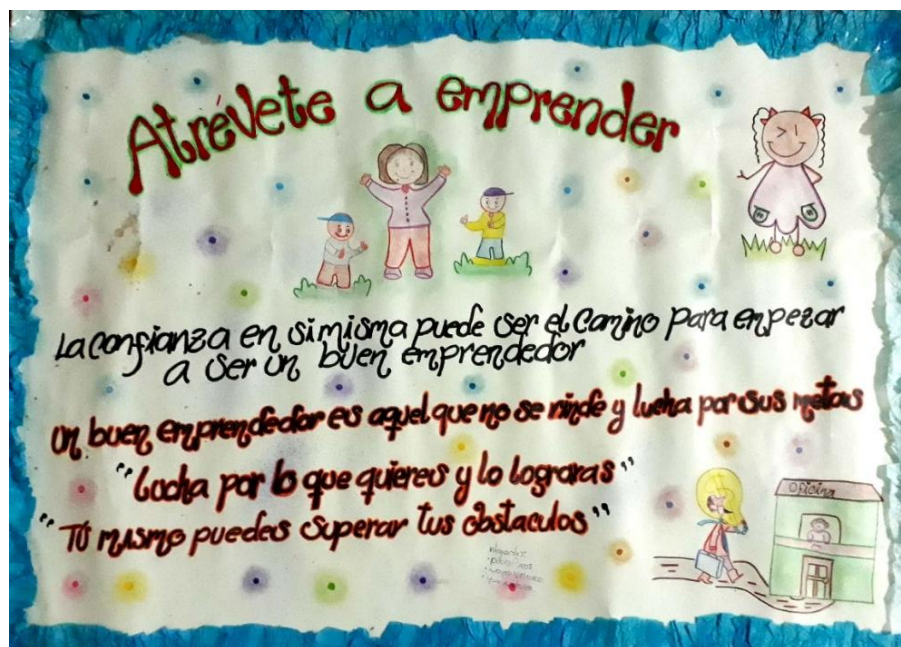 Atrévete a emprender
La confianza en si misma puede ser el camino para enpezar
a ser un buen emprendedor
un buen emprendedor es aquel que no se rinde y lucha por sus metas
"Lucha por lo que quieres y lo lograras"
"Tú mismo puedes superar tus obstaculos"
Oficina